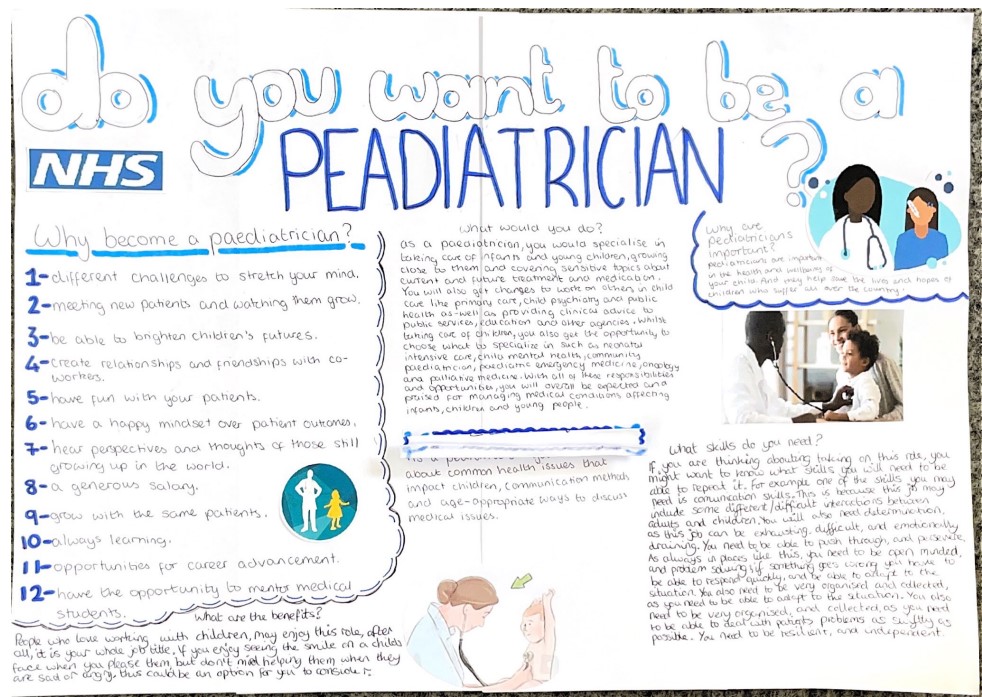 do you want to be a
PEADIATRICIAN?
NHS
Why become a paediatrician?
1-different challenges to stretch your mind.
2-meeting new patients and watching them grow.
3-be able to brighten children's futures.
4-create relationships and friendships with co-
workers.
5-have fun with your patients.
6-have a happy mindset over patient outcomes.
7-hear perspectives and thoughts of those still
growing up in the world.
8-a generous salary.
9-grow with the same patients.
10-always learning.
11-opportunities for career advancement.
12-have the opportunity to mentor medical
students.
What are the benefits?
People who love working with children, may enjoy this role, after
all, it is your whole job title. If you enjoy seeing the smile on a childs
face when you please them, but don't mind helping them when they
are sad or angry, thus could be an option for you to consider.
What would you do?
as a paediatrician, you would specialise in
taking care of infants and young children, growing
close to them and covering sensitive topics about
current and future treatment and medication.
You will also get changes to work on others in child
care like primary care, child psychiatry and public
health as-well as providing clinical advice to
public services, education and other agencies. Whilst
taking care of children, you also get the opportunity to
choose what to specialize in such as neonatal
intensive care, child mental health, community
paediatrician, paediatric emergency medicine, oncology
and palliative medicine. With all of these responsibilities
and opportunities, you will overall be expected and
praised for managing medical conditions affecting
infants, children and young people.
about common health issues that
impact children, communication methods
and age-appropriate ways to discuss
medical issues.
Why are
pediatricians
important?
pediatricians are important
in the health and wellbeing of
your child. And may help save the lives and hopes of
children who suffer all over the country.
What skills do you need?
If you are thinking abouting taking on this role, you
might want to know what skills you will need to be
able to repeat it. For example one of the skills you may
need is comunication skills. This is because this job may
include some different/difficult interactions between
adults and children. You will also need determination,
as this job can be exhausting, difficult, and emotionally
draining. You need to be able to push through, and persevere.
As always in places like this, you need to be open minded,
and problem solving if something goes wrong you have to
be able to respond quickly, and be able to adapt to the
situation. You also need to be very organised and collected,
as you need to be able to adapt to the situation. You also
need to be very organised, and collected, as you need
to be able to deal with patients problems as swiftly as
possible. You need to be resilient, and independent.